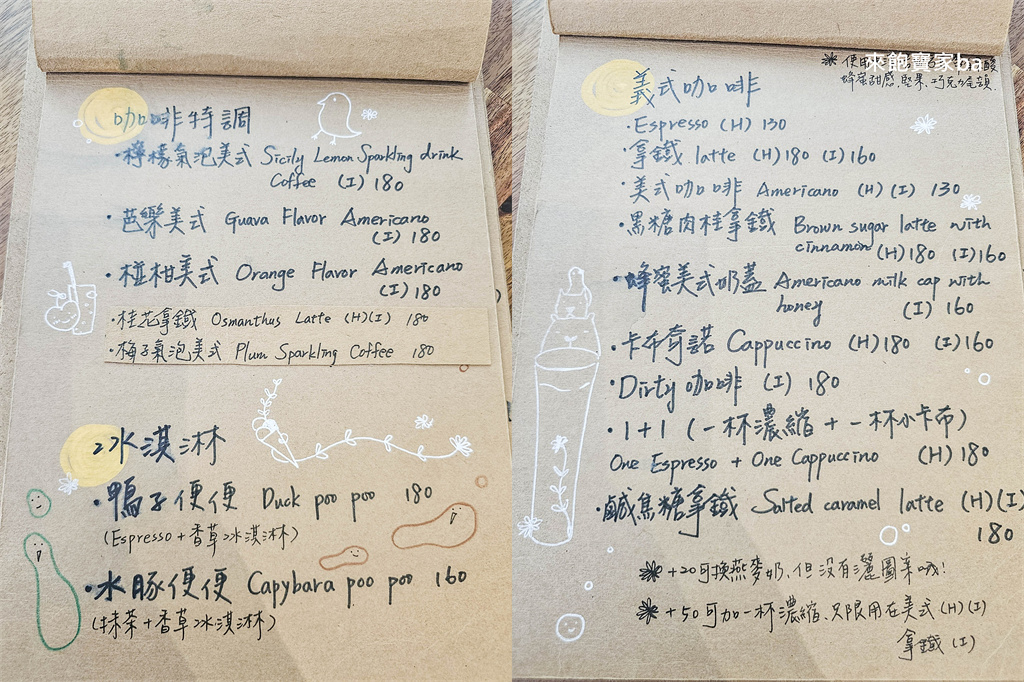 咖啡特調
·檸檬氣泡美式 Sicily Lemon Sparkling drink
Coffee (I) 180
·芭樂美式 Guava Flavor Americano
(I) 180
·椪柑美式 Orange Flavor Americano
(I) 180
·桂花拿鐵 Osmanthus Latte (H)(I) 180
·梅子氣泡美式 Plum Sparkling Coffee 180
冰淇淋
·鴨子便便 Duck poo poo 180
(Espresso+香草冰淇淋)
·水豚便便 Capybara poo poo 160
(抹茶+香草冰淇淋)
來飽寶家ba
使用 酸
蜂蜜甜感、堅果、巧克力尾韻
義式咖啡
·Espresso (H) 130
·拿鐵 latte (H)180 (I)160
·美式咖啡 Americano (H) (I) 130
·黑糖肉桂拿鐵 Brown sugar latte with
cinnamon (H)180 (I)160
·蜂蜜美式奶蓋 Americano milk cap with
honey (I) 160
·卡布奇諾 Cappuccino (H)180 (I)160
·Dirty咖啡 (I) 180
·1+1 (一杯濃縮+一杯小卡布)
One Espresso + One Cappuccino (H)180
·鹹焦糖拿鐵 Salted caramel latte (H)(I)
180
+20可換燕麥奶、但沒有灑圖案哦!
+50可加一杯濃縮、只限用在美式(H)(I)
拿鐵(I)